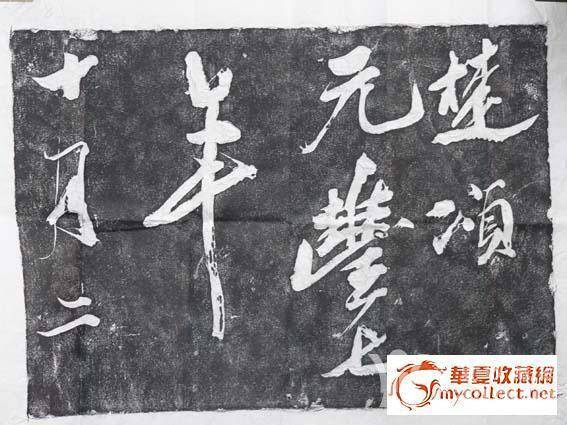 楚頌
元豐七
年
十月二
華夏收藏網
mycollect.net